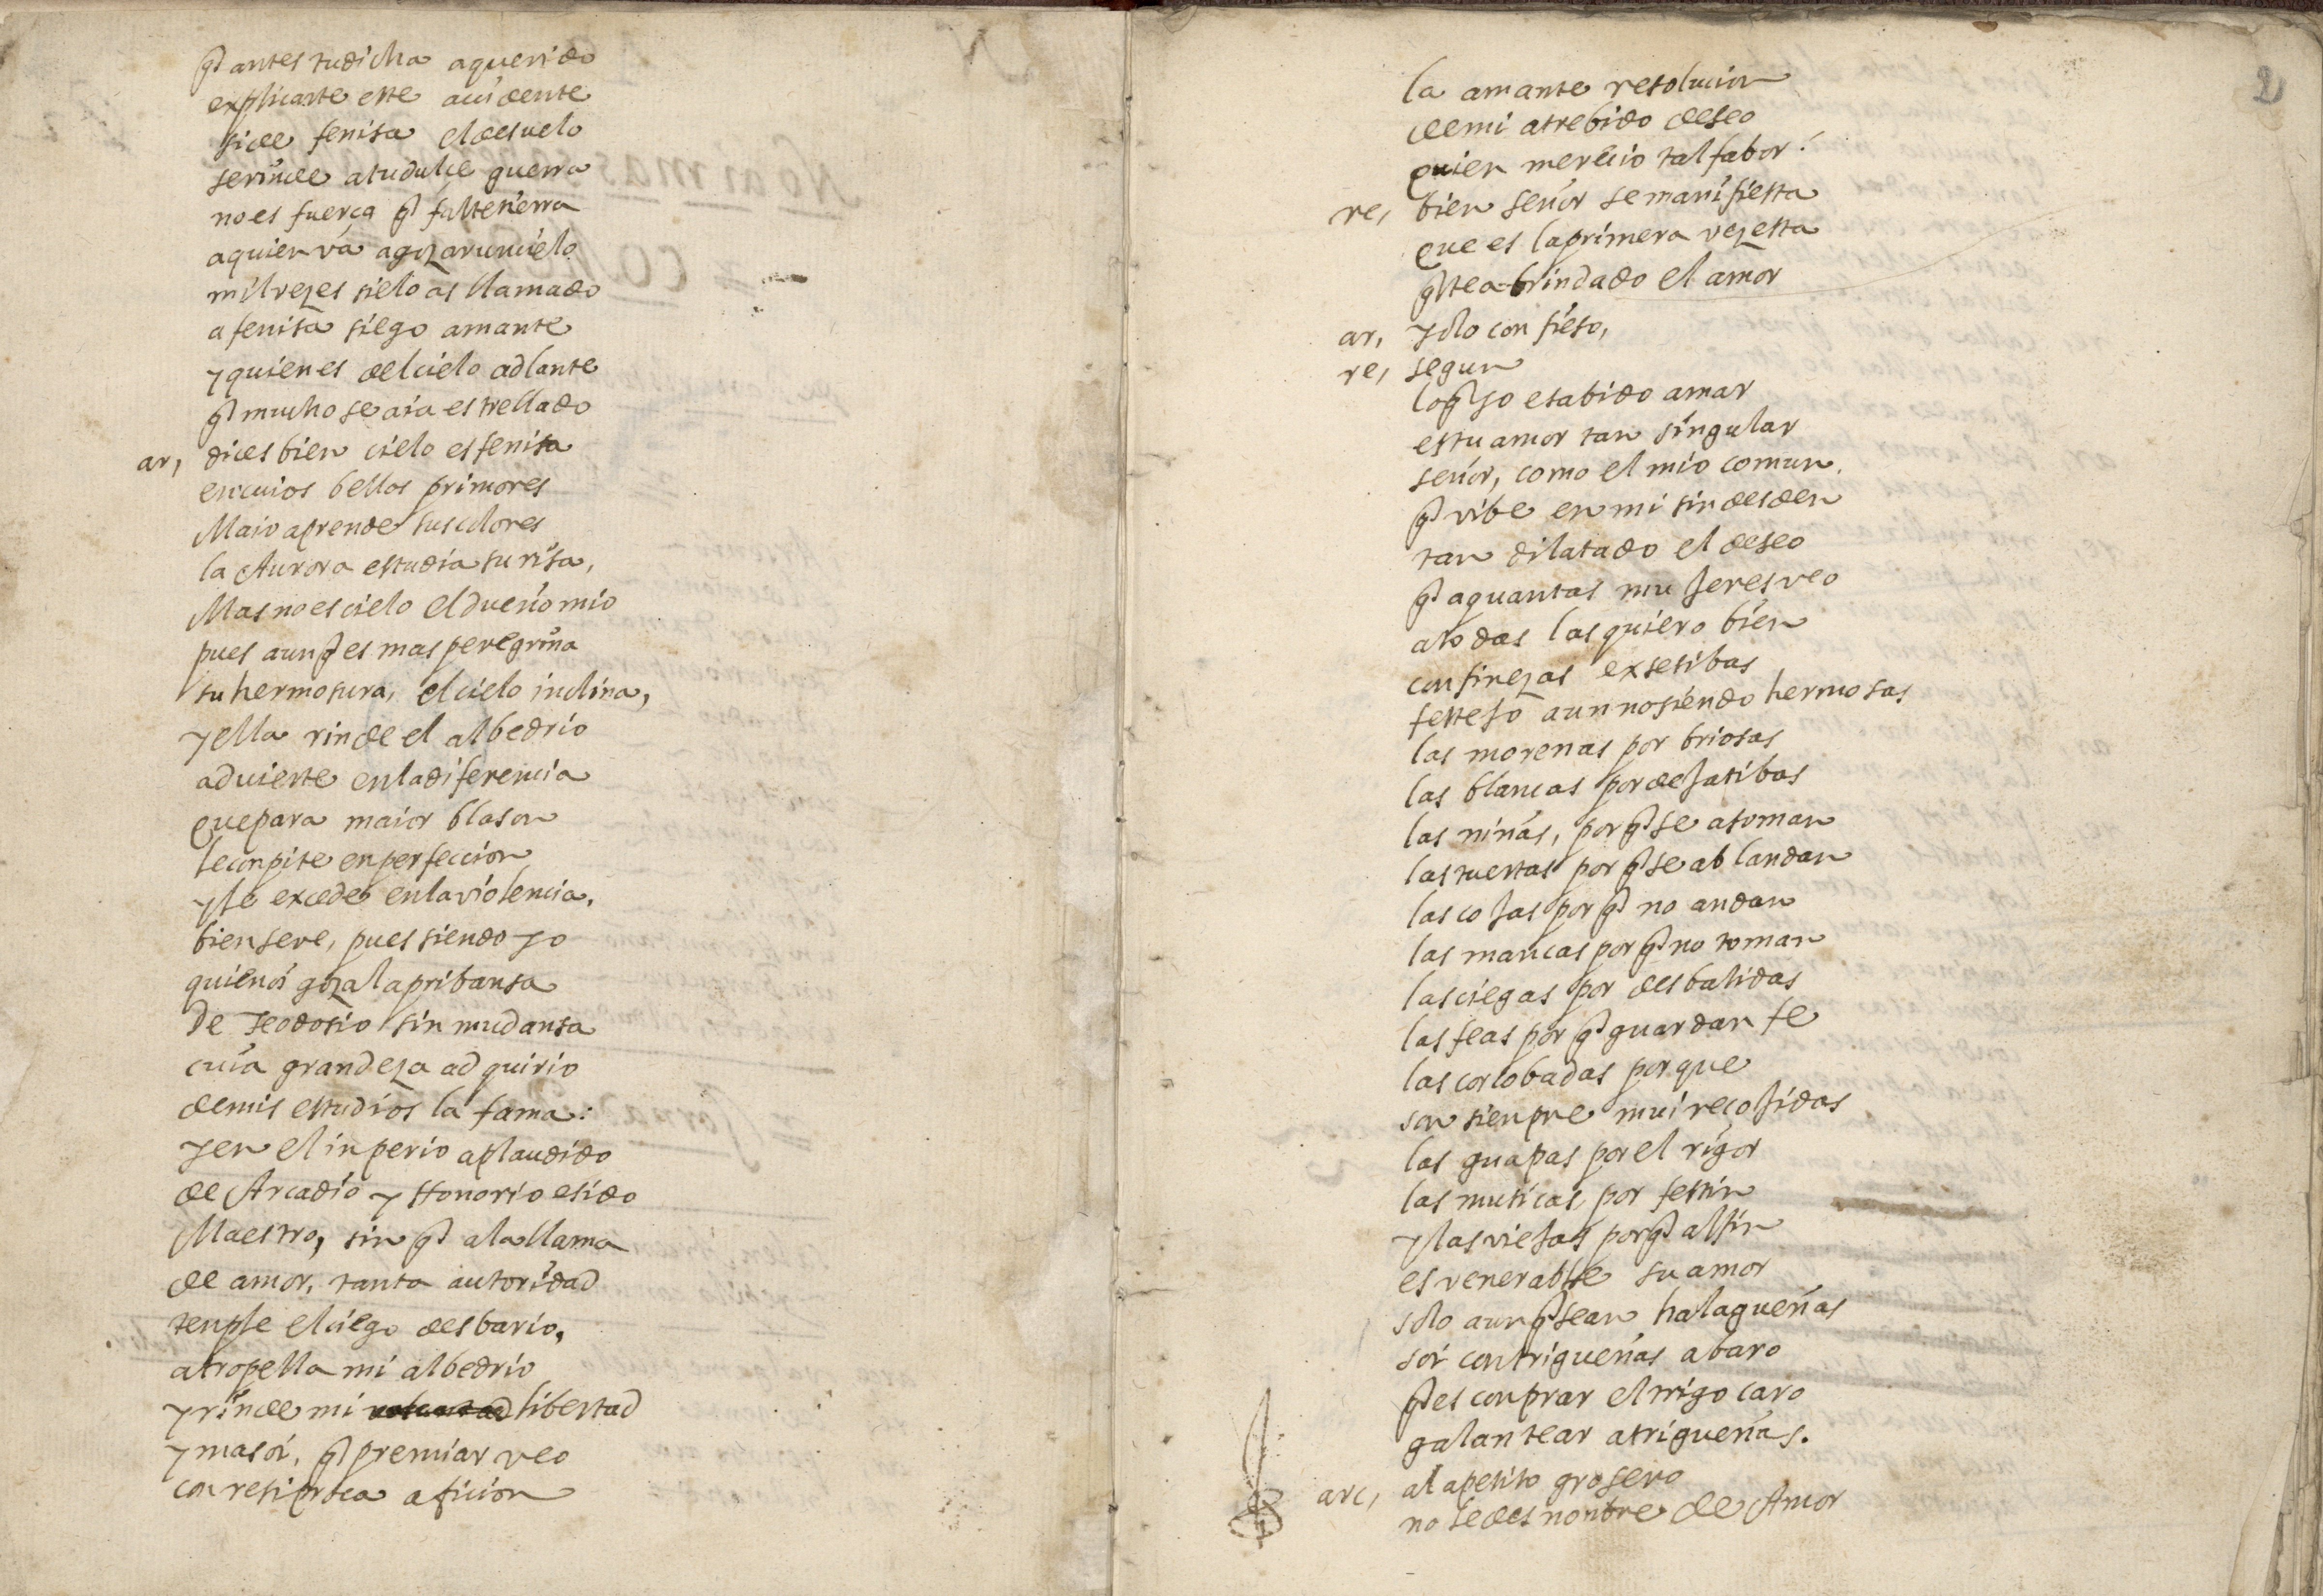 q̃ antes tu dicha a querido
explicarte este accidente
si de fenisa el desuelo
se rinde a tu dulce guerra
no es fuerça q̃ falte tierra
a quien vá a gozar un cielo
mil vezes sielo as llamado
a fenisa siego amante
y quien es del cielo adlante
q̃ mucho se aia estrellado
ar, dices bien cielo es fenisa
en cuios bellos primores
Maio aprende sus colores
la Aurora estudia su risa,
Mas no es cielo el dueño mio
pues aunq̃ es mas peregrina
su hermosura, el cielo inclina,
y ella rinde el albedrio
advierte en la diferencia
que para maior blason
le conpite en perfeccion
y le excede en la violencia,
bien se ve, pues siendo yo
quien oi goza la pribansa
De Teodosio sin mudansa
cuia grandeza adquirio
de mis estudios la fama:
y en el inperio aplaudido
de Arcadio y Honorio e sido
Maestro, sin q̃ a la llama
de amor, tanta autoridad
tenple el ciego desbario,
atropella mi albedrio
y rinde mi voluntad libertad
y mas oi, q̃ premiar veo
con resiproca aficion
2
la amante resolucion
de mi atrebido deseo
quien merecio tal fabor!
re, bien señor se manifiesta
que es la primera vez esta
q̃ te a brindado el amor
ar, yo lo confieso,
re, segun
lo q̃ yo e sabido amar
es tu amor tan singular
señor, como el mio comun.
q̃ vibe en mi sin desden
tan dilatado el deseo
q̃ a quantas mujeres veo
a todas las quiero bien
con finezas exsesibas
festejo aun no siendo hermosas
las morenas por briosas
las blancas por dejatibas
las niñas, por q̃ se asoman
las tuertas por q̃ se ablandan
las cojas por q̃ no andan
las mancas por q̃ no toman
las ciegas por desbalidas
las feas por q̃ guardan fe
las corcobadas porque
son sienpre mui recojidas
las guapas por el rigor
las musicas, por festin
y las viejas por q̃ al fin
es venerable su amor
solo aunq̃ sean halagueñas
soi con trigueñas abaro
q̃ es conprar el trigo caro
galantear a trigueñas.
arc, al apetito grosero
no le des nonbre de Amor